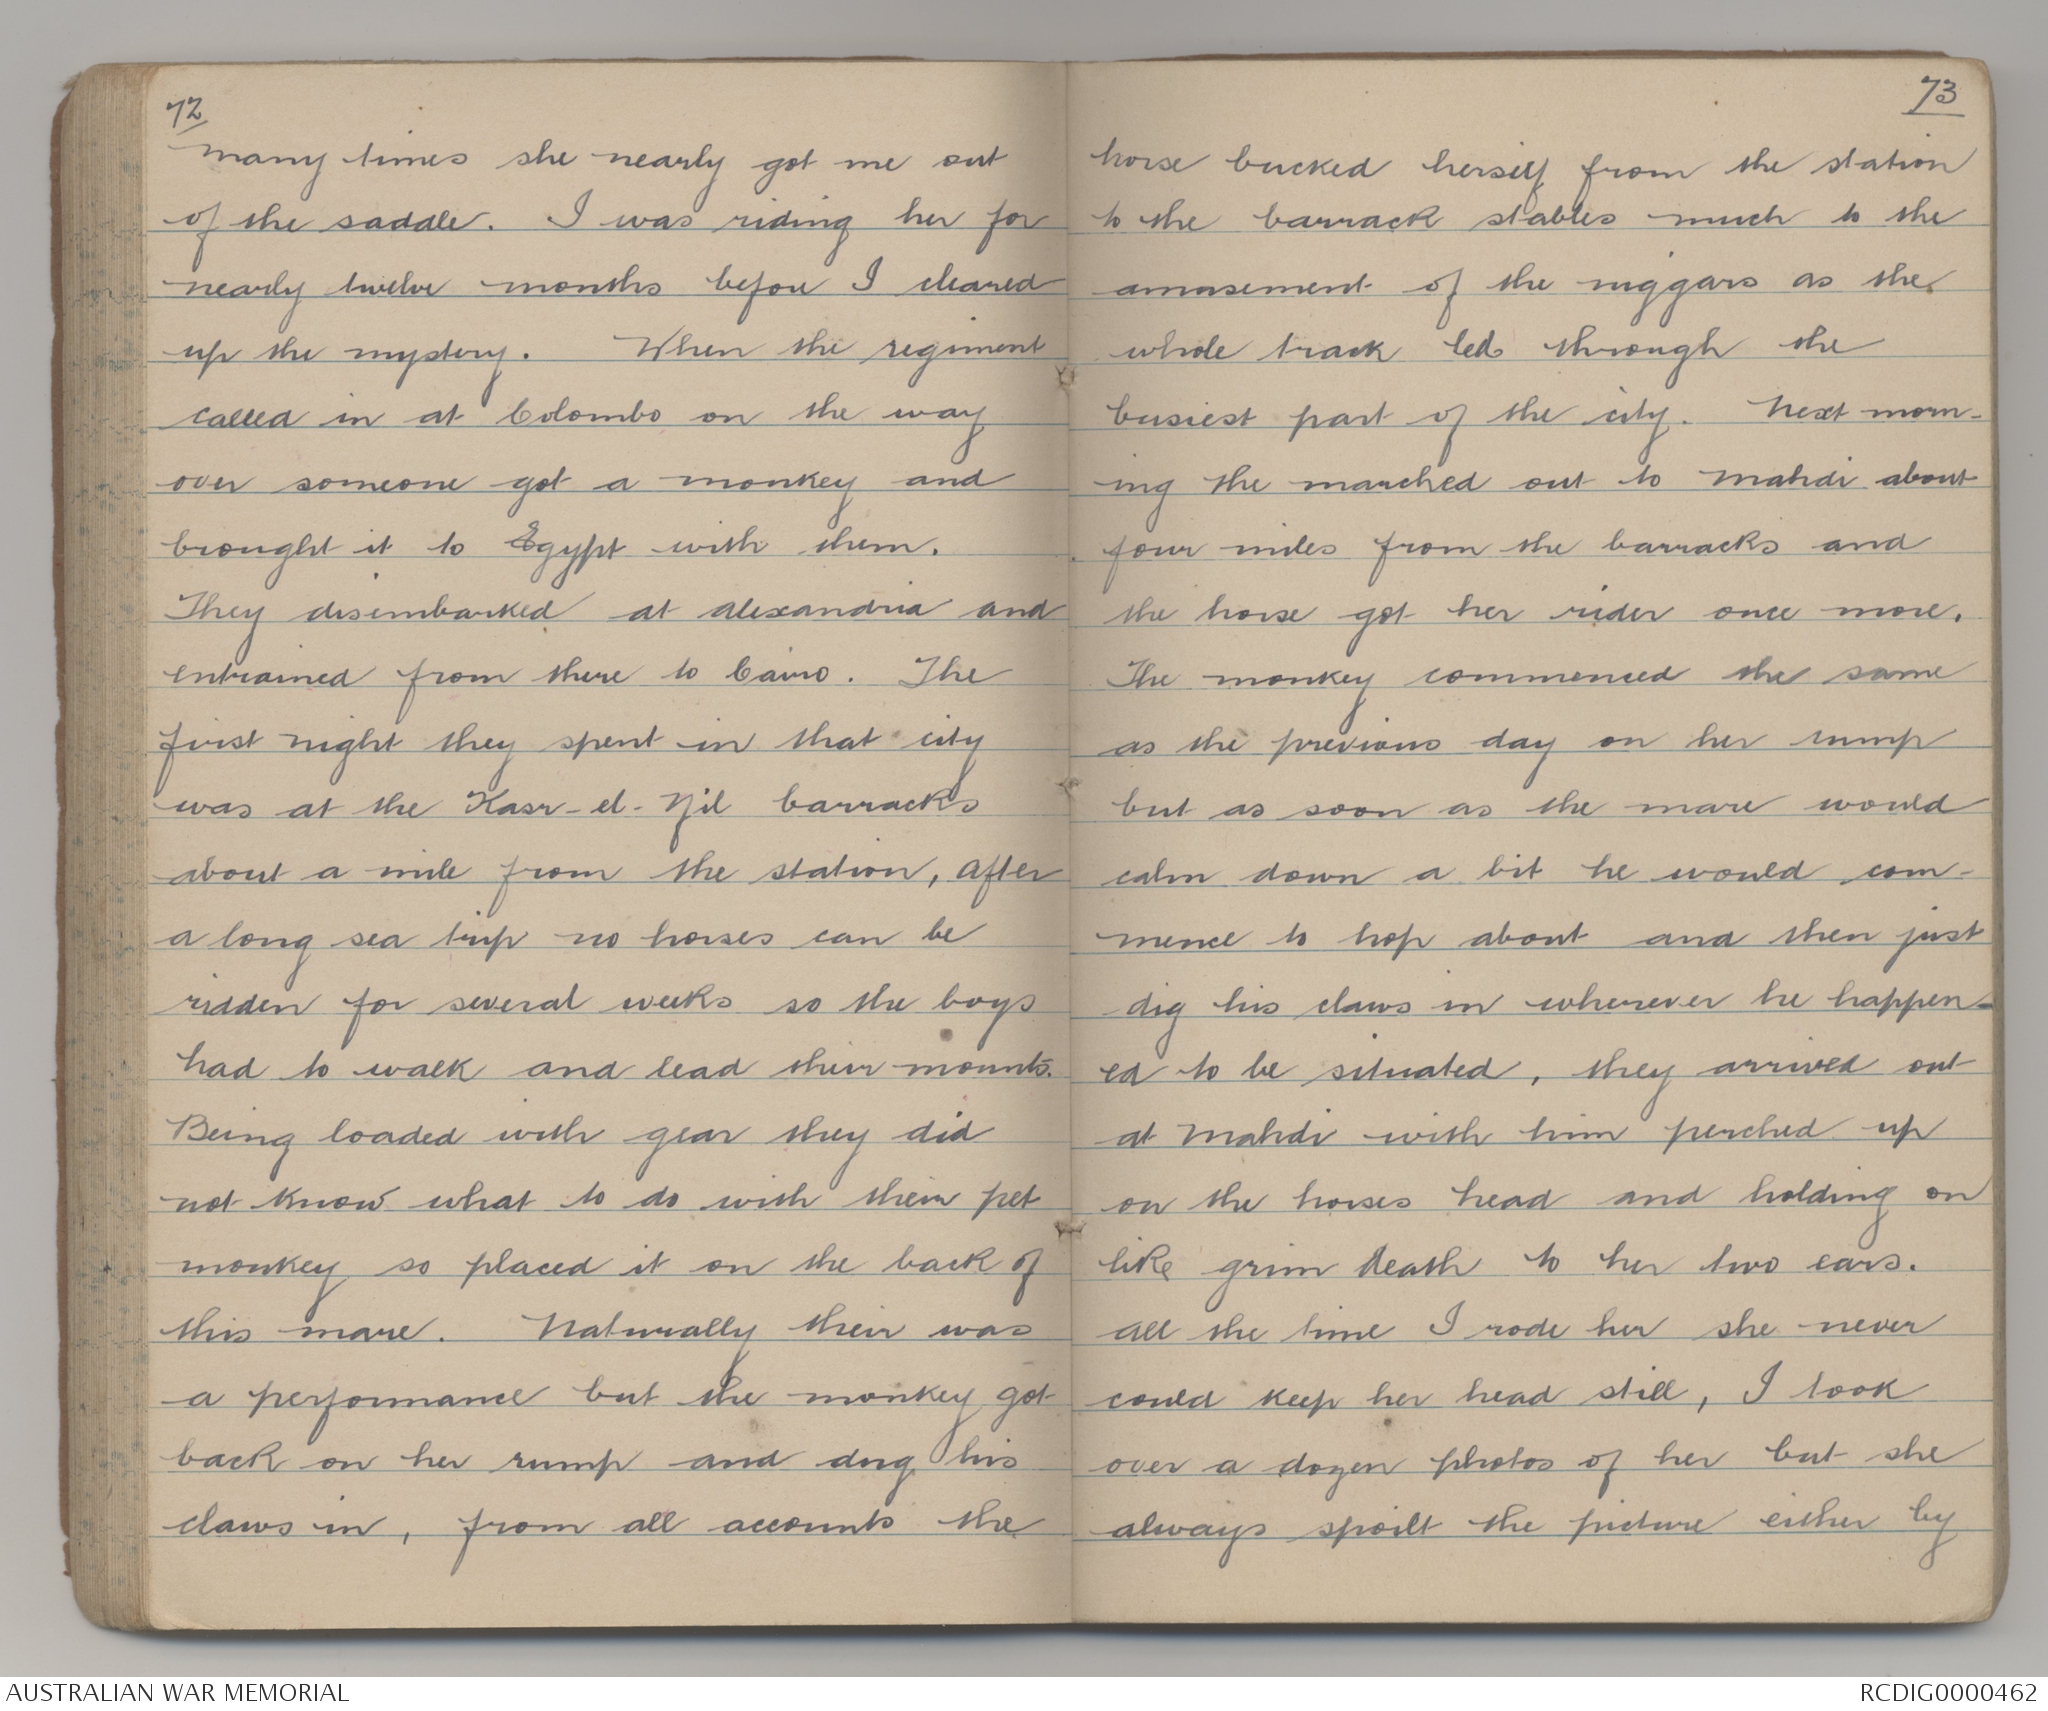 72
many times she nearly got me out
of the saddle. I was riding her for
nearly twelve months before I cleared
up the mystery. When the regiment
called in at Colombo on the way
over someone got a monkey and
brought it to Egypt with them.
They disembarked at Alexandria and
entrained from there to Cairo. The
first night they spent in that city
was at the Kasr-el-Nil barracks
about a mile from the station, after
a long sea trip no horses can be
ridden for several weeks so the boys
had to walk and lead their mounts.
Being loaded with gear they did
not know what to do with their pet
monkey so placed it on the back of
this mare. Naturally their was
a performance but the monkey got
back on her rump and dug his
claws in, from all accounts the
73
horse bucked herself from the station
to the barrack stables much to the
amusement of the niggars as the
whole track led through the
busiest part of the city. Next morn-
ing the marched out to Mahdi about
four miles from the barracks and
the horse got her rider once more.
The monkey commenced the same
as the previous day on her rump
but as soon as the mare would
calm down a bit he would com-
mence to hop about and then just
dig his claws in wherever he happen-
ed to be situated, they arrived out
at Mahdi with him perched up
on the horses head and holding on
like grim death to her two ears.
All the time I rode her she never
could keep her head still, I took
over a dozen photos of her but she
always spoilt the picture either by
AUSTRALIAN WAR MEMORIAL
RCDIG0000462